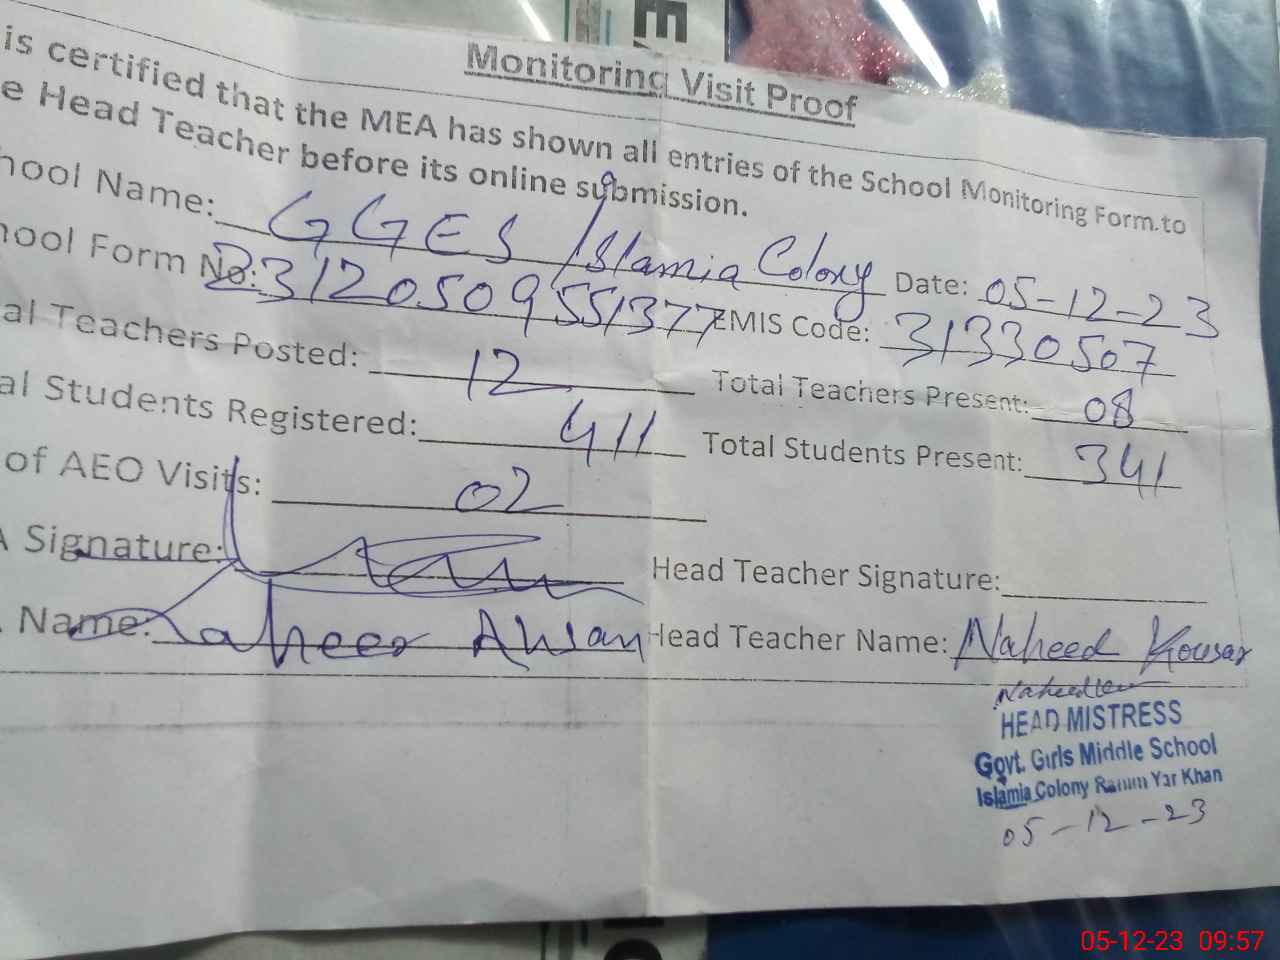 Monitoring Visit Proof
is certified that the MEA has shown all entries of the School Monitoring Form.to
e Head Teacher before its online submission.
hool Name: GGES Islamia Colony Date: 05-12-23
hool Form No: 23120509551377 EMIS Code: 31330507
al Teachers Posted: 12 Total Teachers Present: 08
al Students Registered: 411 Total Students Present: 341
of AEO Visits: 02
A Signature: Head Teacher Signature:
Name: Ahsan Head Teacher Name: Naheed Kousar
HEAD MISTRESS
Govt. Girls Middle School
Islamia Colony Rahim Yar Khan
05-12-23
05-12-23 09:57